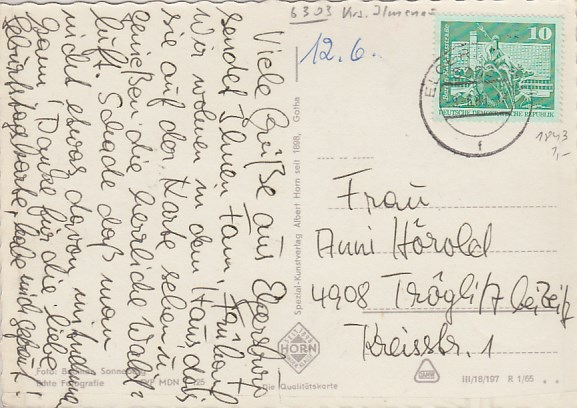 6303 Krs. Ilmenau
12.6.
10
DEUTSCHE DEMOKRATISCHE REPUBLIK
1843
1,-
Viele Grüße aus
sendet Ihnen Fam.
Wir wohnen in dem Haus das
sie auf der Karte sehen u.
genießen die herrliche Wald-
luft. Schade daß man
nicht etwas davon mitnehmen
kann. Danke für die liebe
Geburtstagskarte, habe mich gefreut!
Spezial-Kunstverlag Albert Horn seit 1898, Gotha
Frau
Anni Hörold
4908 Tröglitz bei Zeitz
Kreisstr. 1
HORN
Die Qualitätskarte
Foto:
Echte Fotografie
MDN
III/18/197 R 1/65